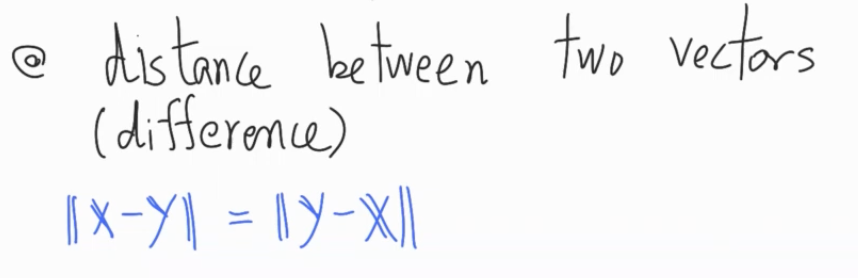 @ distance between two vectors
(difference)
||x-y|| = ||y-x||